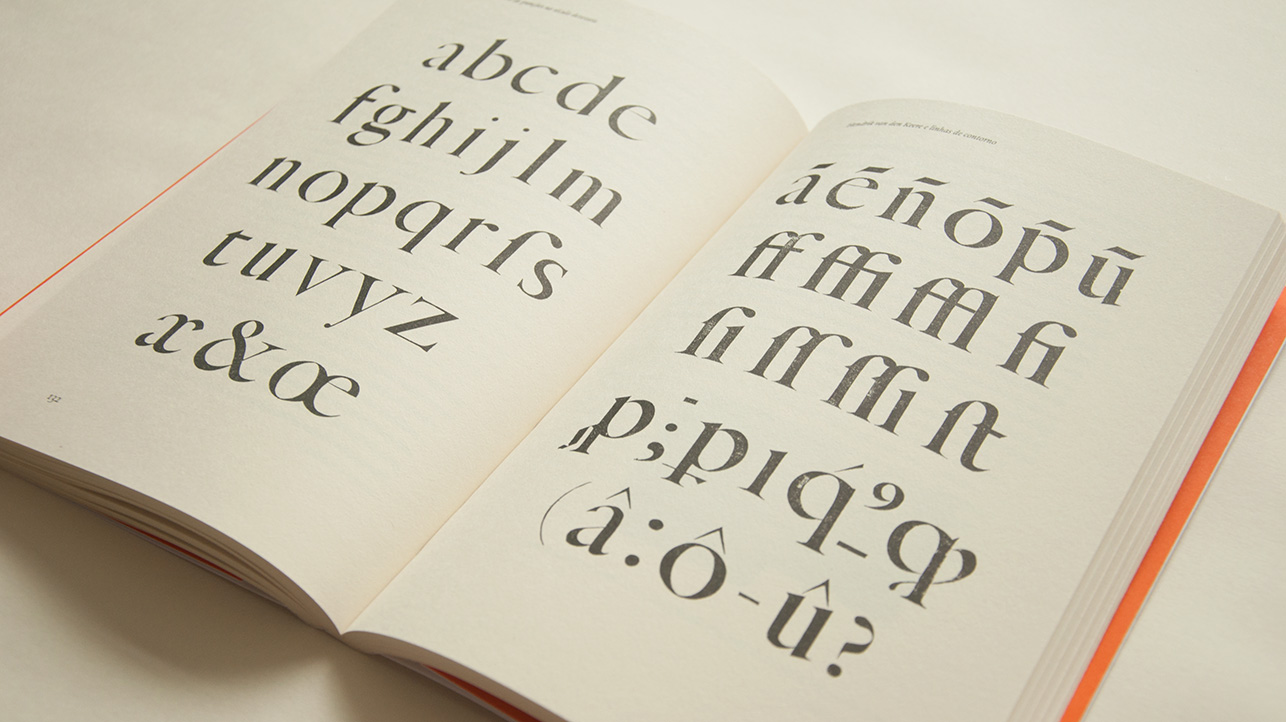 abcde
fghijlm
nopqrſs
tuvyz
x&œ
132
Hendrik van den Keere e linhas de contorno
áēñōp̄ū
ff ffi ffl fi
ſi ſſ ſſi ſt
ꝓ;ꝑıq́ꝰꝙ
(â:ô-û?